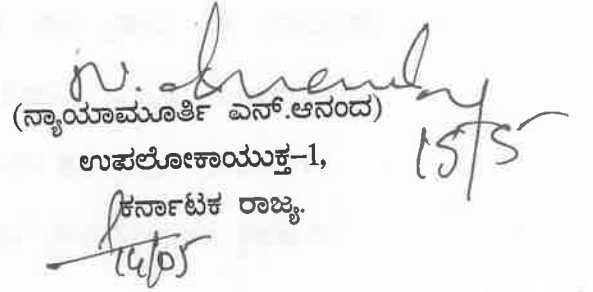 N. Ananda
(ನ್ಯಾಯಾಮೂರ್ತಿ ಎನ್.ಆನಂದ)
15/5
ಉಪಲೋಕಾಯುಕ್ತ-1,
ಕರ್ನಾಟಕ ರಾಜ್ಯ.
14/05